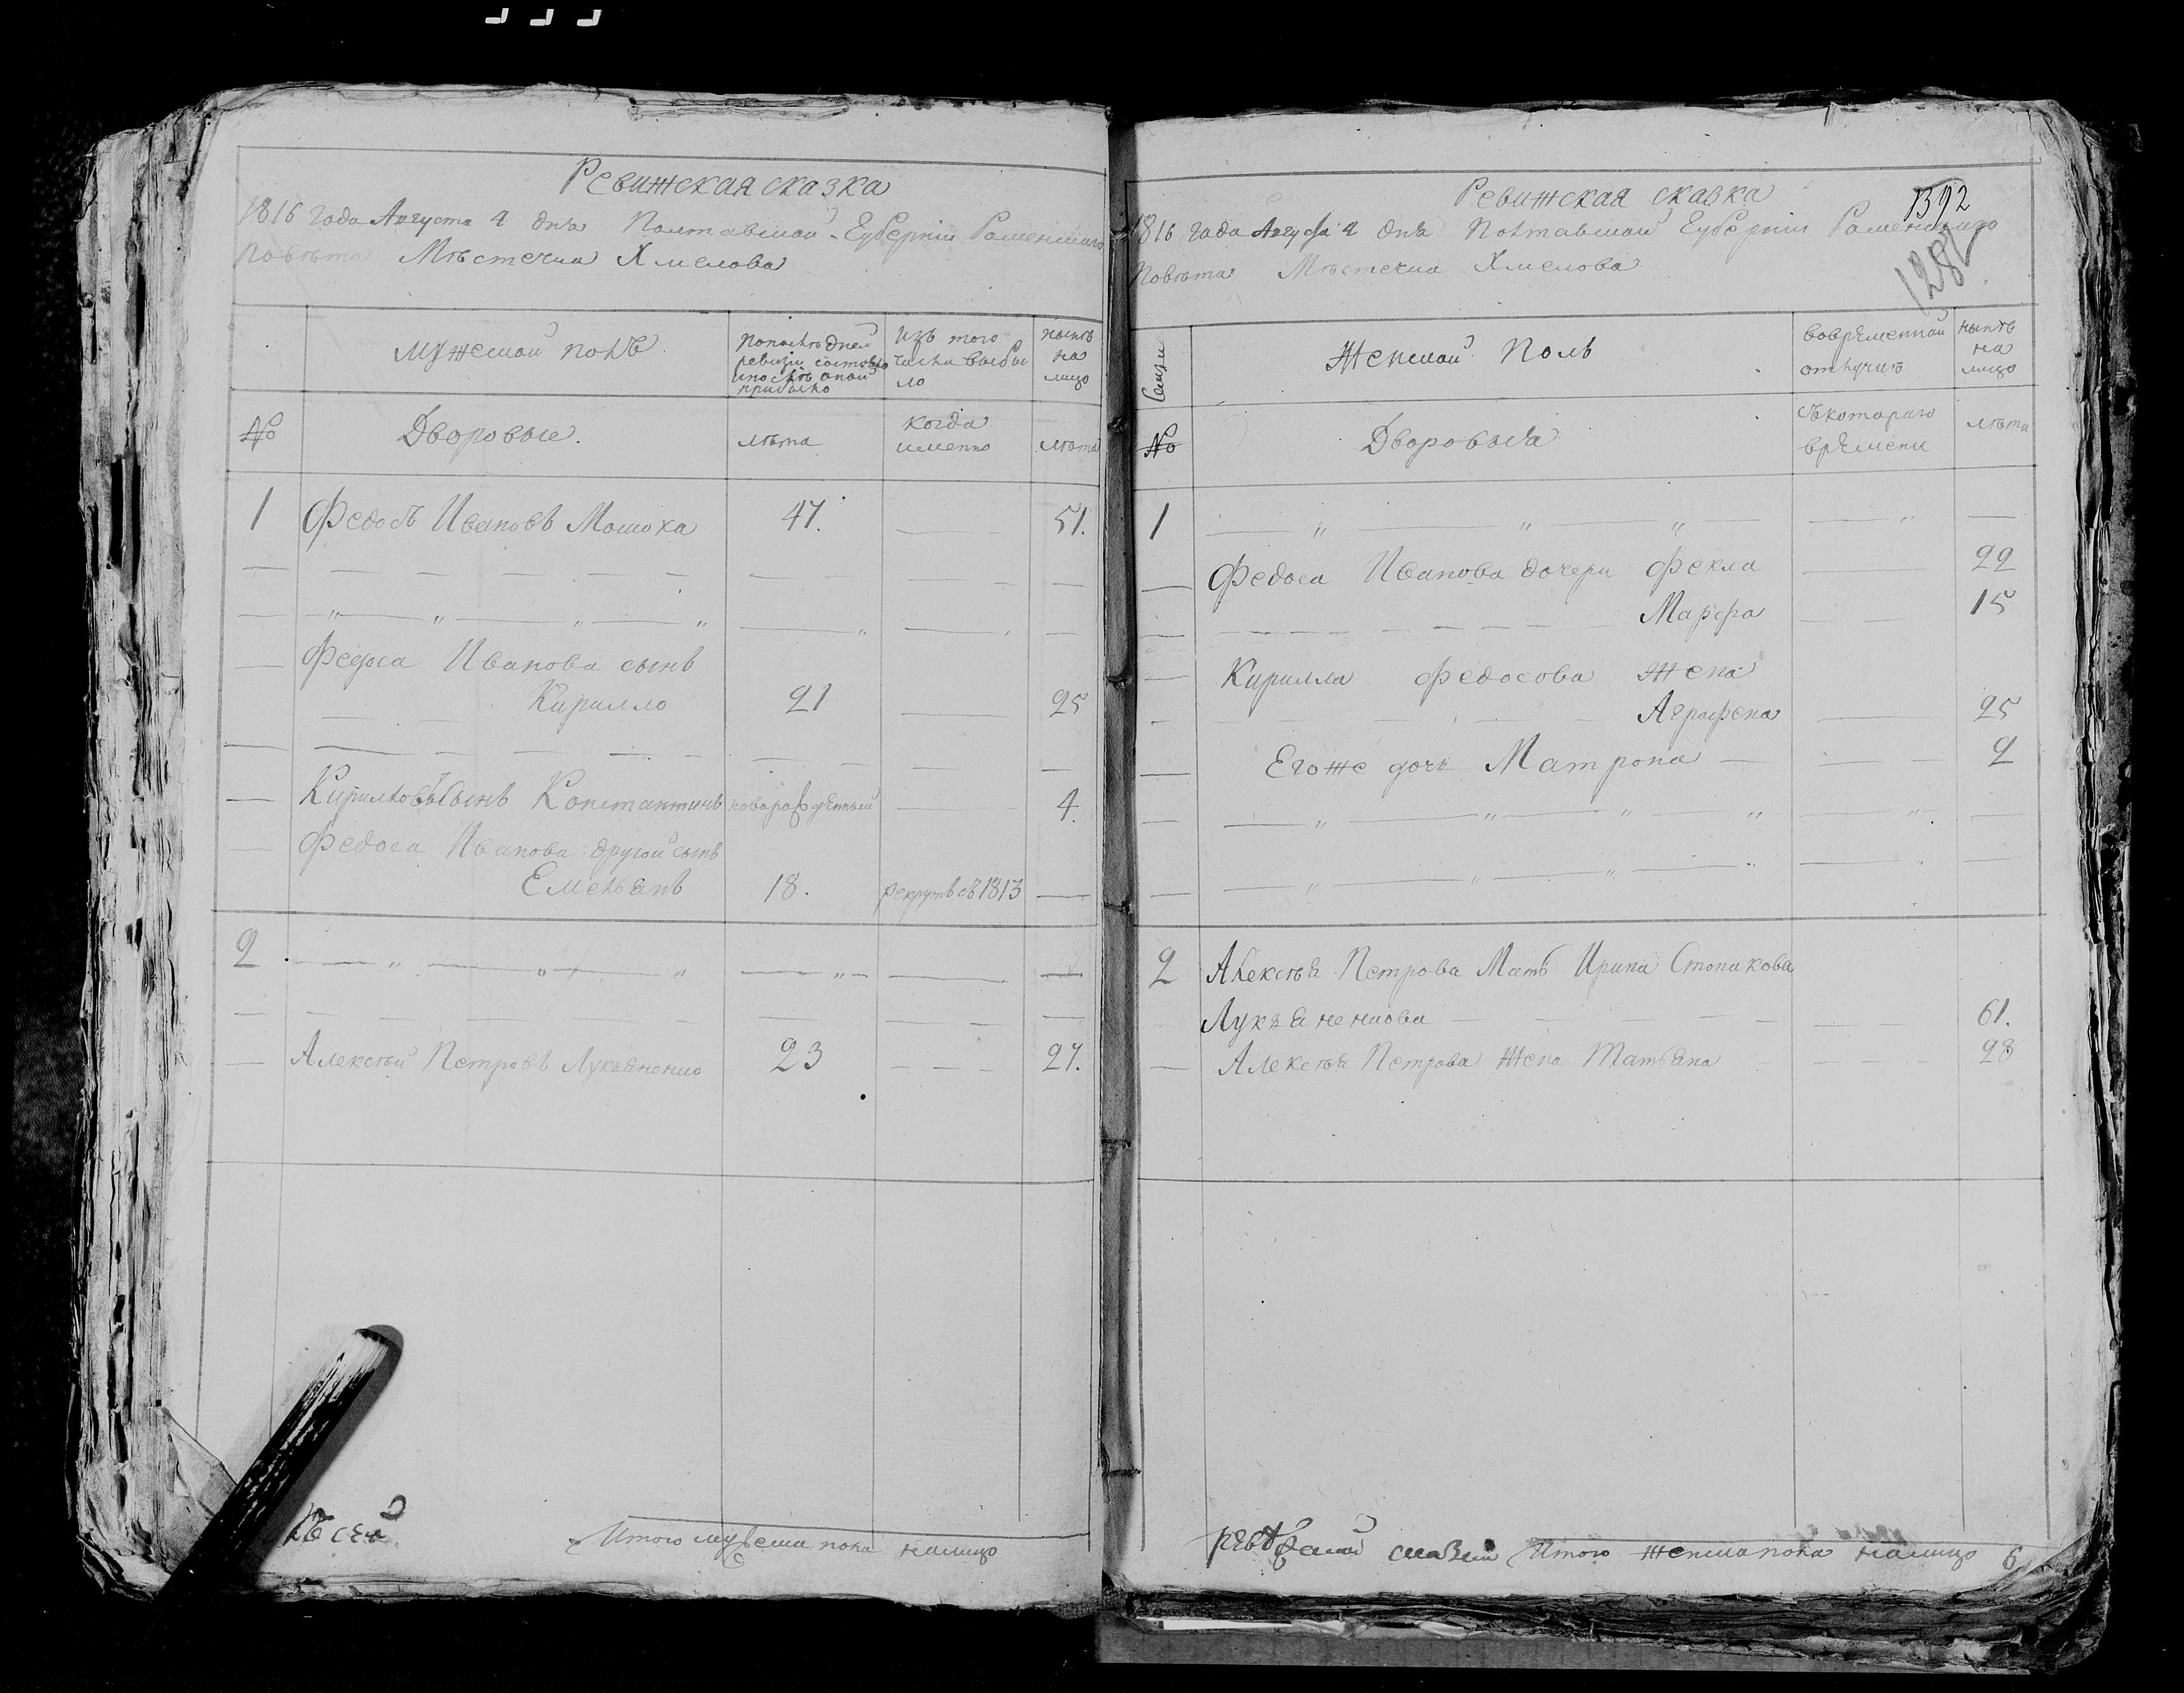 Ревижская сказка
1816 года Августа 4 дня Полтавской Губернии Роменскаго
Повѣта Мѣстечка Хмелова
Мужской полъ
По послѣдней ревизіи состояло и послѣ оной прибыло
Изъ того числа выбыло
нынѣ на лицо
№
Дворовые.
лѣта
когда именно
лѣта
1 Федосъ Ивановъ Мошоха 47. 51.
Федоса Иванова сынъ
Кирилло 21 25
Кирилловъ Сынъ Константинъ новорожденный 4.
Федоса Иванова другой сынъ
Емельянъ 18. рекрутъ съ 1813
2
Алексѣй Петровъ Лукьяненко 23 27.
Итого мужеска пола налицо
Ревижская сказка
1392
1816 года Августа 4 дня Полтавской Губерніи Роменскаго
Повѣта Мѣстечка Хмелова
1282
Семьи
Женской Полъ
Вовременной отлучкѣ
нынѣ на лицо
№
Дворовыя
Съкотораго времени
лѣта
1
Федоса Иванова дочери Фекла 22
Марфа 15
Кирилла Федосова жена
Аграфена 25
Егоже дочь Матрона 2
2 Алексѣя Петрова Мать Ирина Стопакова
Лукьяненкова 61.
Алексѣя Петрова Жена Татьяна 28
Итого женска пола налицо 6